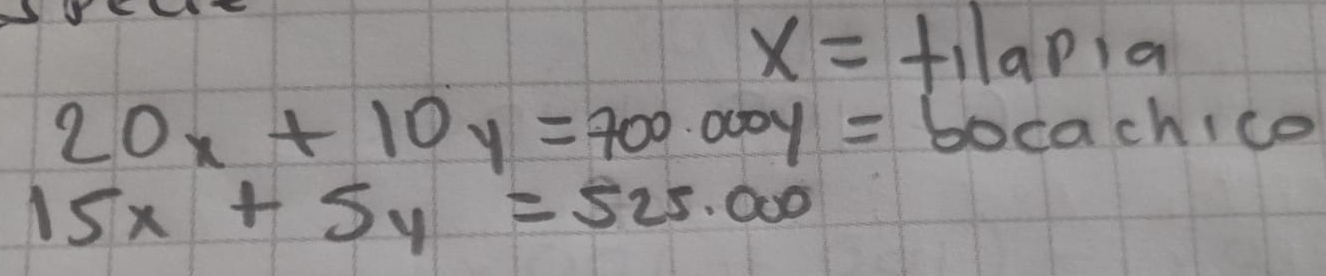 x = tilapia
20x + 10y = 700.000 y = bocachico
15x + 5y = 525.000